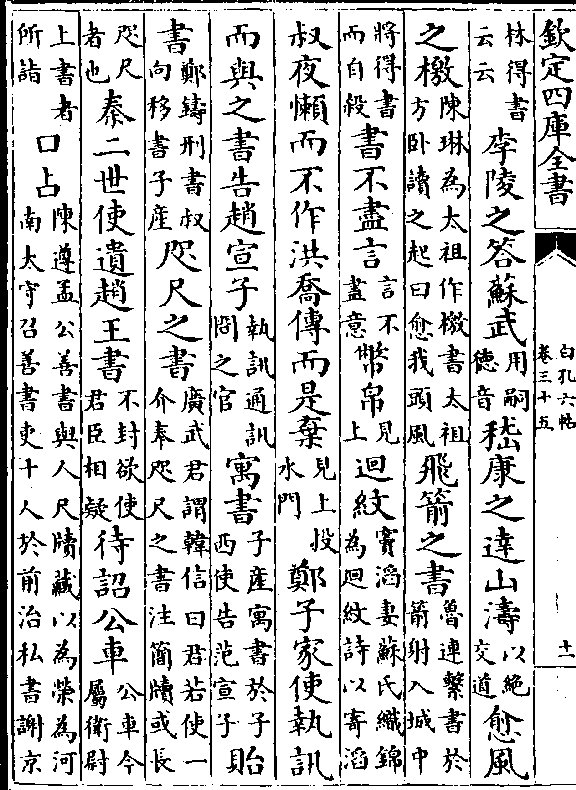 欽定四庫全書
白孔六帖
卷三十五
十一
林得書
云云
李陵之答蘇武
用嗣
德音
嵇康之達山濤
以絕
交道
愈風
之檄
陳琳為太祖作檄書太祖
方卧讀之起曰愈我頭風
飛箭之書
魯連繫書於
箭射入城中
將得書
而自殺
書不盡言
言不
盡意
幣帛
見
上
迴紋
竇滔妻蘇氏織錦
為迴紋詩以寄滔
叔夜懶而不作洪喬傳而是棄
見上投
水門
鄭子家使執訊
而與之書告趙宣子
執訊通訊
問之官
寓書
子產寓書於子
西使告范宣子
貽
書
鄭鑄刑書叔
向移書子產
咫尺之書
廣武君謂韓信曰君若使一
介奉咫尺之書注簡牘或長
咫尺
者也
秦二世使遺趙王書
不封欲使
君臣相疑
待詔公車
公車令
屬衛尉
上書者
所詣
口占
陳遵孟公善書與人尺牘藏以為榮為河
南太守召善書吏十人於前治私書謝京